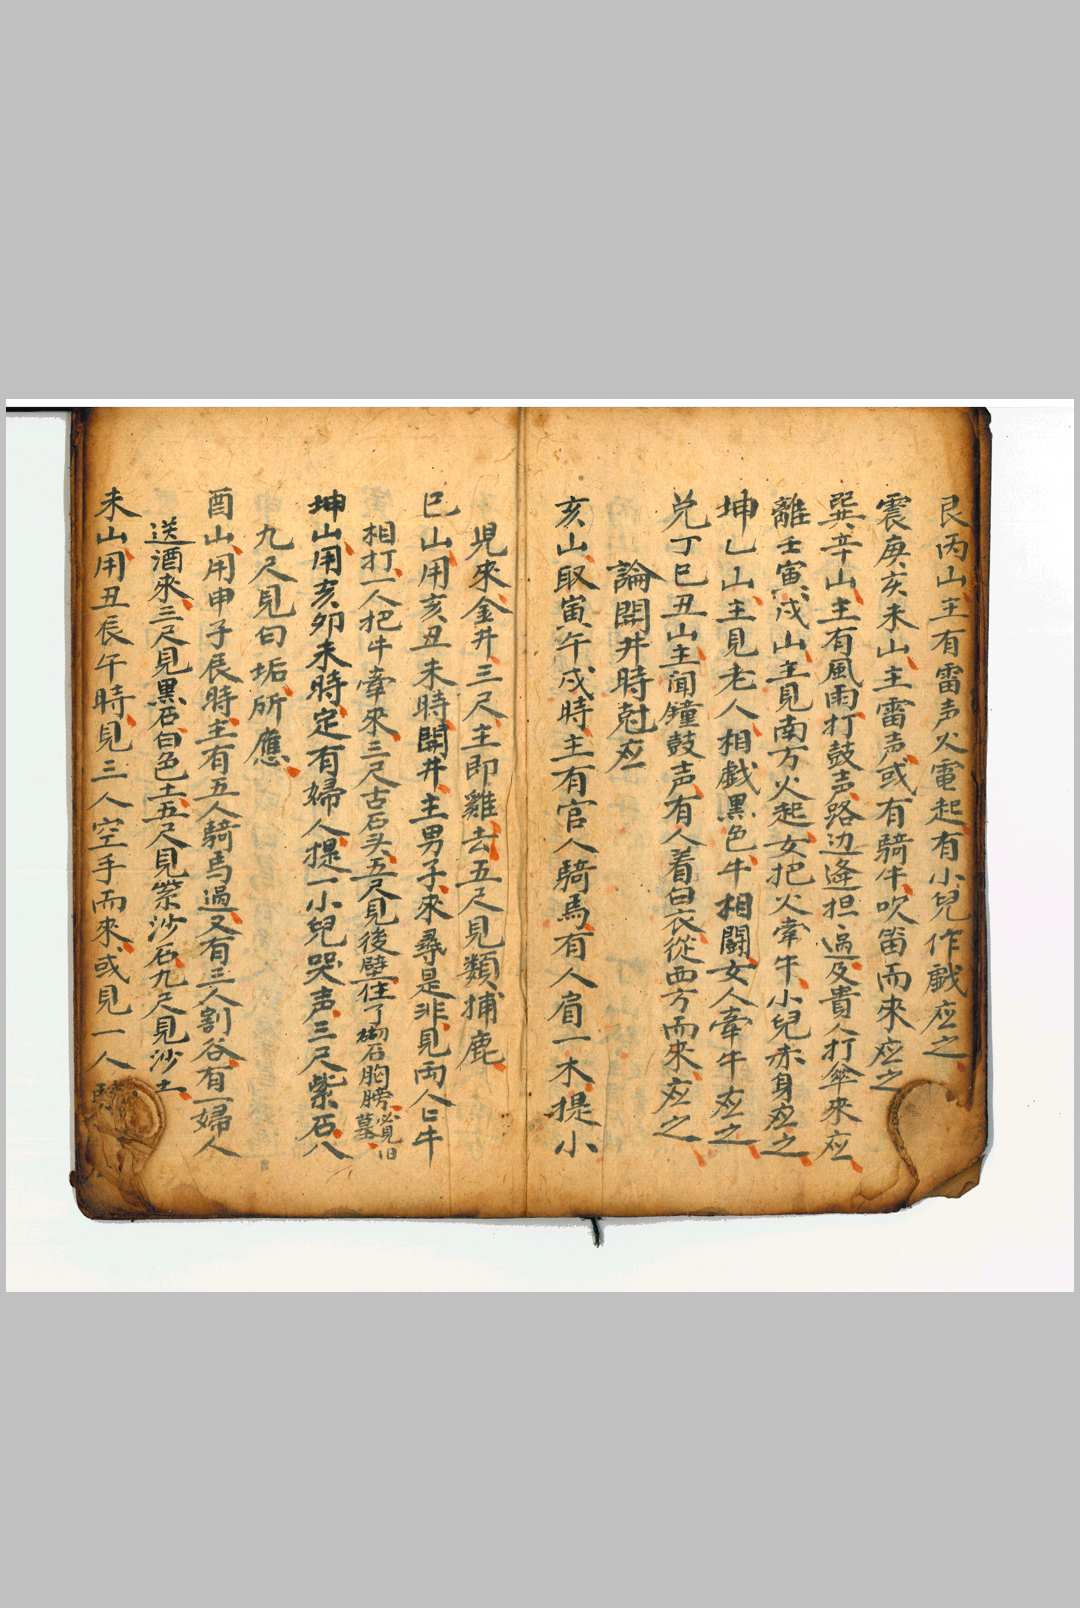 艮丙山主有雷声火電起有小兒作戲应之
震庚亥未山主雷声或有騎牛吹笛而來应之
巽辛山主有風雨打鼓声路边逢担過及貴人打傘來应
離壬寅戌山主見南方火起女把火牽牛小兒赤身应之
坤乙山主見老人相戲黑色牛相鬪女人牽牛应之
兊丁巳丑山主闻鐘鼓声有人着白衣從西方而來应之
論開井時尅应
亥山取寅午戌時主有官人騎馬有人肩一木提小
児來金井三尺主即雞去五尺見類捕鹿
巳山用亥丑未時開井主男子來尋是非見両人上牛
相打一人把牛牽來三尺古石头五尺見後壁住了石胸膀必見旧墓
坤山用亥卯未時定有婦人提一小兒哭声三尺紫石八
九尺見白垢所應
酉山用申子辰時主有五人騎馬過又有三人割谷有一婦人
送酒來三尺見黑石白色土五尺見紫沙石九尺見沙土
未山用丑辰午時見三人空手而來或見一人